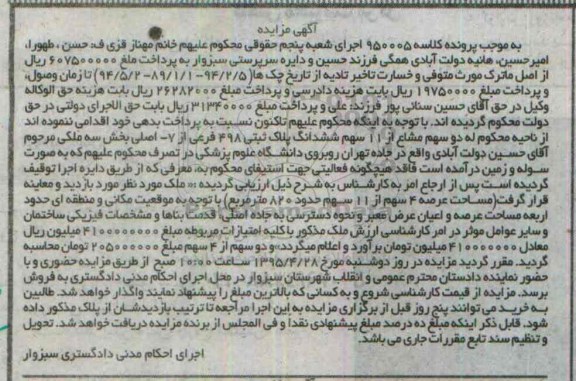 آگهی مزایده
به موجب پرونده کلاسه ۹۵۰۰۰۵ اجرای شعبه پنجم حقوقی محکوم علیهم خانم مهناز قزی ف: حسن ، طهورا،
امیرحسین، هانیه دولت آبادی همگی فرزند حسین و دایره سرپرستی سبزوار به پرداخت ملغ ۶۰۷۵۰۰۰۰۰ ریال
از اصل ماترک مورث متوفی و خسارت تاخیر تادیه از تاریخ چک ها( ۹۴/۲/۵-۸۹/۱/۱-۹۴/۵/۲) تا زمان وصول،
و پرداخت مبلغ ۱۹۷۵۰۰۰۰ ریال بابت هزینه دادرسی و پرداخت مبلغ ۲۶۲۸۲۰۰۰ ریال بابت هزینه حق الوکاله
وکیل در حق آقای حسین سنائی پور فرزند: علی و پرداخت مبلغ ۳۱۳۴۰۰۰۰ ریال بابت حق الاجرای دولتی در حق
دولت محکوم گردیده اند. با توجه به اینکه محکوم علیهم تاکنون نسبت به پرداخت بدهی خود اقدامی ننموده اند
از ناحیه محکوم له دو سهم مشاع از ۱۱ سهم ششدانگ پلاک ثبتی ۴۹۸ فرعی از ۷- اصلی بخش سه ملکی مرحوم
آقای حسین دولت آبادی واقع در جاده تهران روبروی دانشگاه علوم پزشکی در تصرف محکوم علیهم که به صورت
سوله و زمین در آمده است فاقد هیچگونه فعالیتی جهت استیفای محکوم به، معرفی که از طریق دایره اجرا توقیف
گردیده است پس از ارجاع امر به کارشناس به شرح ذیل ارزیابی گردیده :« ملک مورد نظر مورد بازدید و معاینه
قرار گرفت( مساحت عرصه ۴ سهم از ۱۱ سهم حدود ۸۲۰ مترمربع) با توجه به موقعیت مکانی و منطقه ای حدود
اربعه مساحت عرصه و اعیان عرض معبر و نحوه دسترسی به جاده اصلی قدمت بناها و مشخصات فیزیکی ساختمان
و سایر عوامل موثر در امر کارشناسی ارزش ملک مذکور با کلیه امتیازات مربوطه مبلغ ۴۱۰۰۰۰۰۰۰۰ میلیون ریال
معادل ۴۱۰۰۰۰۰۰۰ میلیون تومان برآورد و اعلام میگردد»و دو سهم از ۴ سهم مبلغ ۲۰۵۰۰۰۰۰۰ تومان محاسبه
گردید. مقرر گردید مزایده در روز دوشنبه مورخ ۱۳۹۵/۴/۲۸ ساعت ۱۰:۰۰ صبح از طریق مزایده حضوری و با
حضور نماینده دادستان محترم عمومی و انقلاب شهرستان سبزوار در محل اجرای احکام مدنی دادگستری به فروش
برسد. مزایده از قیمت کارشناسی شروع و به کسانی که بالاترین مبلغ را پیشنهاد نمایند واگذار خواهد شد. طالبین
به خرید می توانند پنج روز قبل از برگزاری مزایده به این اجرا مراجعه تا ترتیب بازدیدشان از پلاک مذکور داده
شود. قابل ذکر اینکه مبلغ ده درصد مبلغ پیشنهادی نقدا و فی المجلس از برنده مزایده دریافت خواهد شد. تحویل
و تنظیم سند تابع مقررات جاری می باشد.
اجرای احکام مدنی دادگستری سبزوار